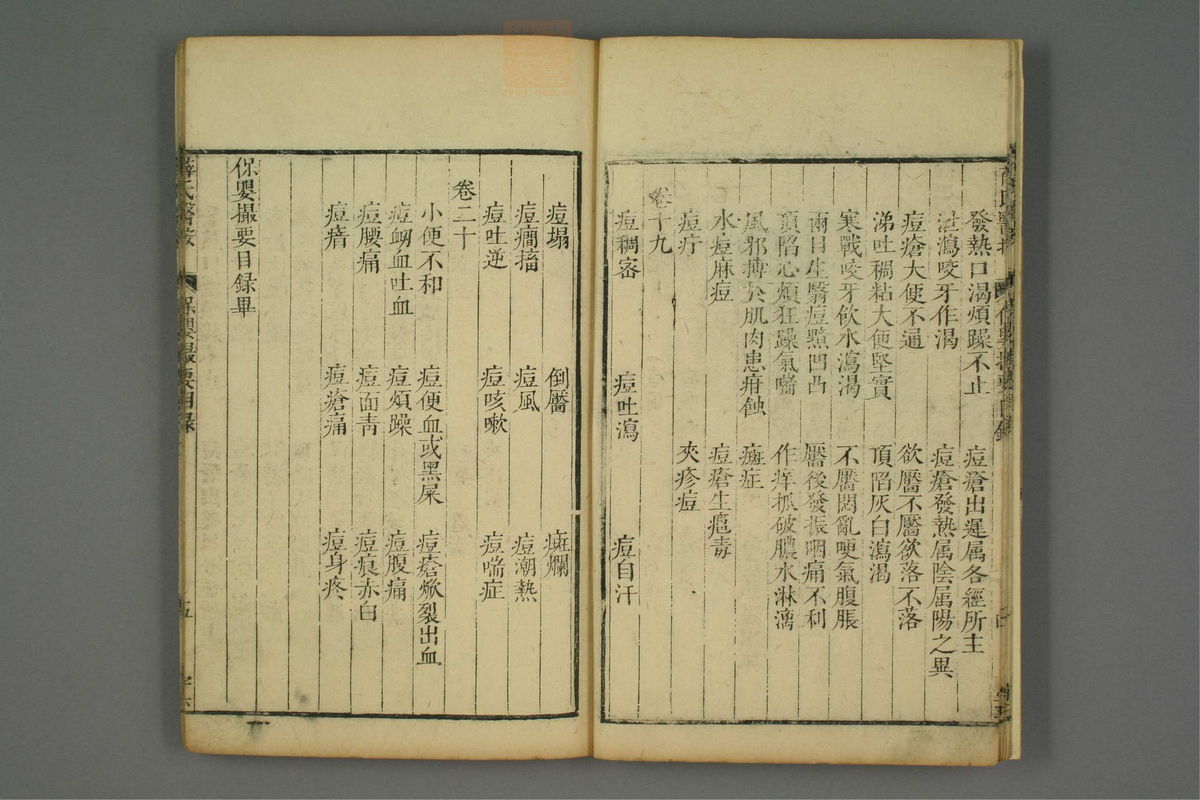 發熱口渴煩躁不止 痘瘡出遲属各經所主
泄瀉咬牙作渴 痘瘡發熱属陰属陽之異
痘瘡大便不通 欲靨不靨欲落不落
涕吐稠粘大便堅實 頂陷灰白瀉渴
寒戰咬牙飲水瀉渴 不靨悶亂哽氣腹脹
兩目生翳痘黶凹凸 靨後發振咽痛不利
頂陷心煩狂躁氣喘 作痒抓破膿水淋漓
風邪搏於肌肉患疳蝕 癍症
水痘麻痘 痘瘡生癮毒
痘疔 夾疹痘
卷十九
痘稠密 痘吐瀉 痘自汗
痘塌 倒靨 癍爛
痘癇搐 痘風 痘潮熱
痘吐逆 痘咳嗽 痘喘症
卷二十
小便不和 痘便血或黑屎 痘瘡㷔裂出血
痘衂血吐血 痘煩躁 痘腹痛
痘腰痛 痘面青 痘痕赤白
痘瘖 痘瘡痛 痘身疼
保嬰撮要目録畢
薛氏醫按 保嬰撮要目録 五